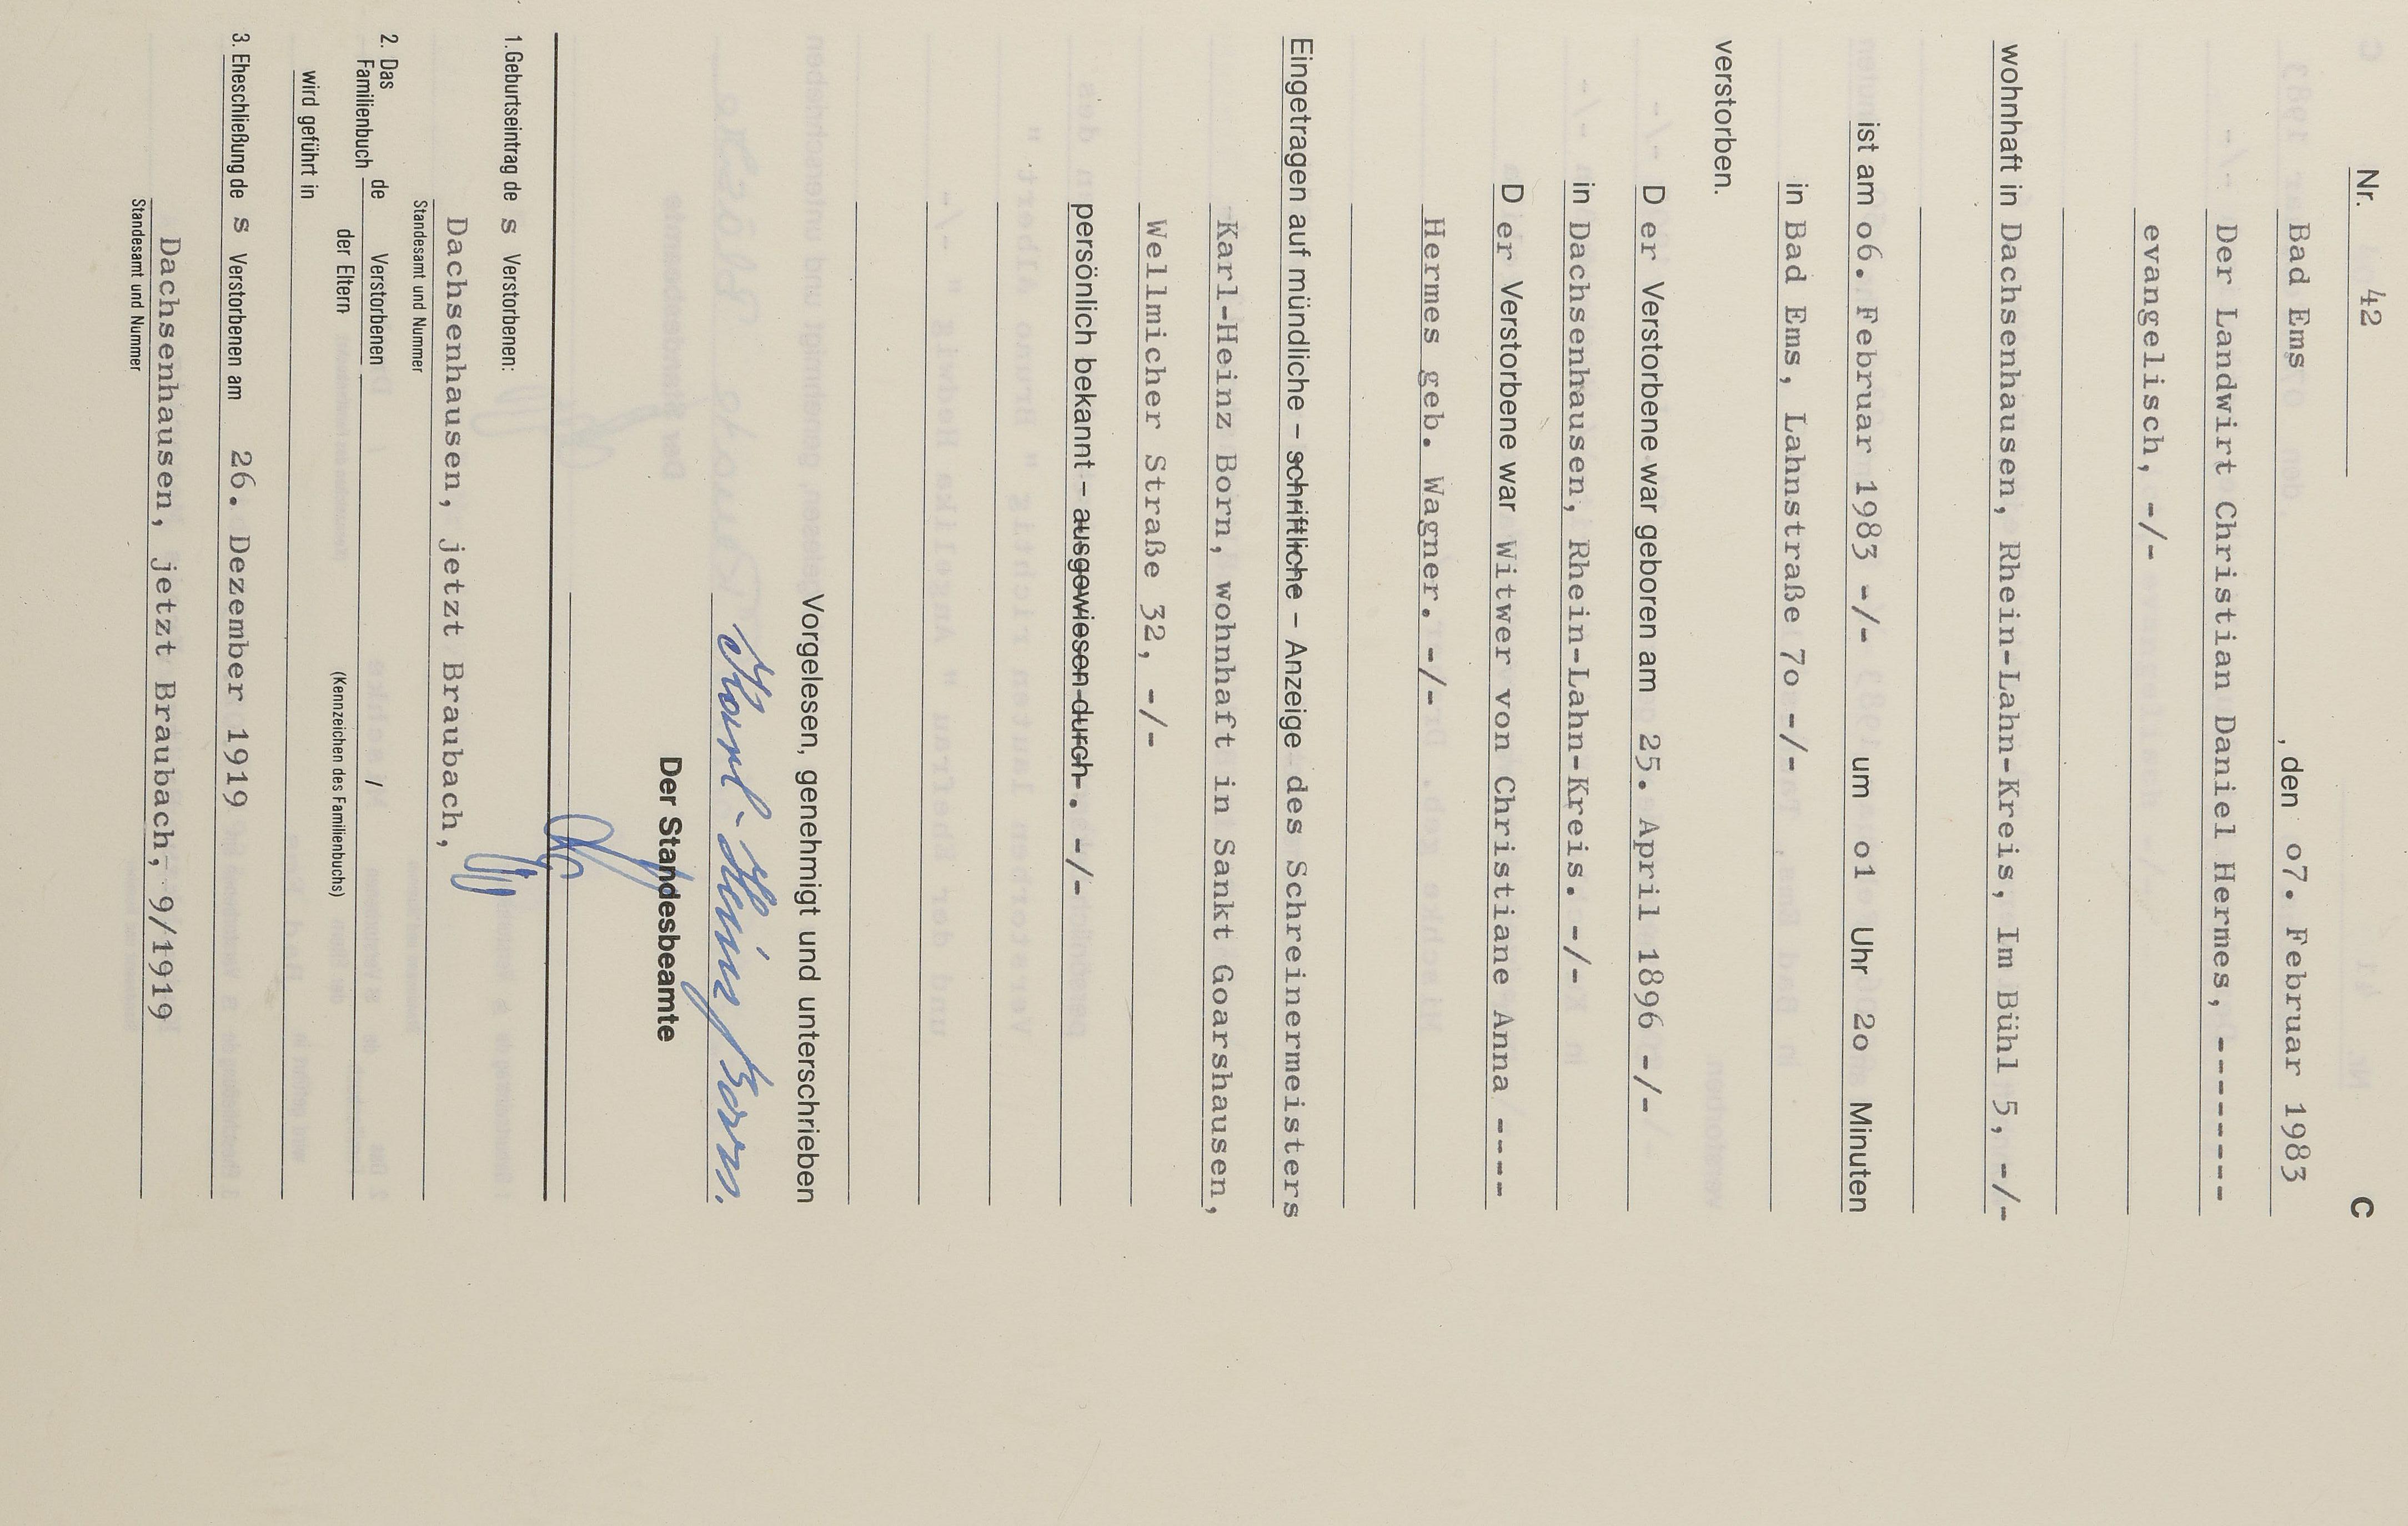 Nr. 42 C
Bad Ems , den o7. Februar 1983
Der Landwirt Christian Daniel Hermes, -------
evangelisch, -/-
wohnhaft in Dachsenhausen, Rhein-Lahn-Kreis, Im Bühl 5, -/-
ist am o6. Februar 1983 -/- um o1 Uhr 2o Minuten
in Bad Ems, Lahnstraße 7o -/-
verstorben.
D er Verstorbene war geboren am 25. April 1896 -/-
in Dachsenhausen, Rhein-Lahn-Kreis. -/-
D er Verstorbene war Witwer von Christiane Anna ----
Hermes geb. Wagner. -/-
Eingetragen auf mündliche – schriftliche – Anzeige des Schreinermeisters
Karl-Heinz Born, wohnhaft in Sankt Goarshausen,
Wellmicher Straße 32, -/-
persönlich bekannt – ausgewiesen durch . -/-
Vorgelesen, genehmigt und unterschrieben
Karl-Heinz Born.
Der Standesbeamte
1. Geburtseintrag de s Verstorbenen:
Dachsenhausen, jetzt Braubach,
Standesamt und Nummer
2. Das Familienbuch de Verstorbenen /
der Eltern
(Kennzeichen des Familienbuchs)
wird geführt in
3. Eheschließung de s Verstorbenen am 26. Dezember 1919
Dachsenhausen, jetzt Braubach, 9/1919
Standesamt und Nummer